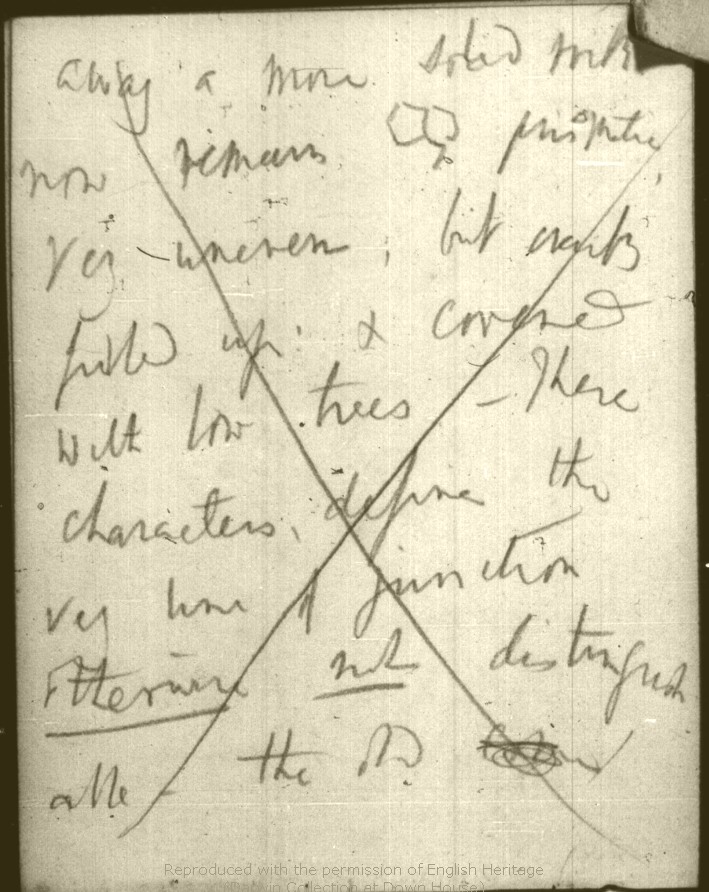 away a more solid rock
now remains prismatic,
Very uneven; but cracks
filled up. & covered
with low trees — These
characters, define the
very line of junction
otherwise not distinguish
able — the old
Reproduced with the permission of English Heritage
(Darwin Collection at Down House)